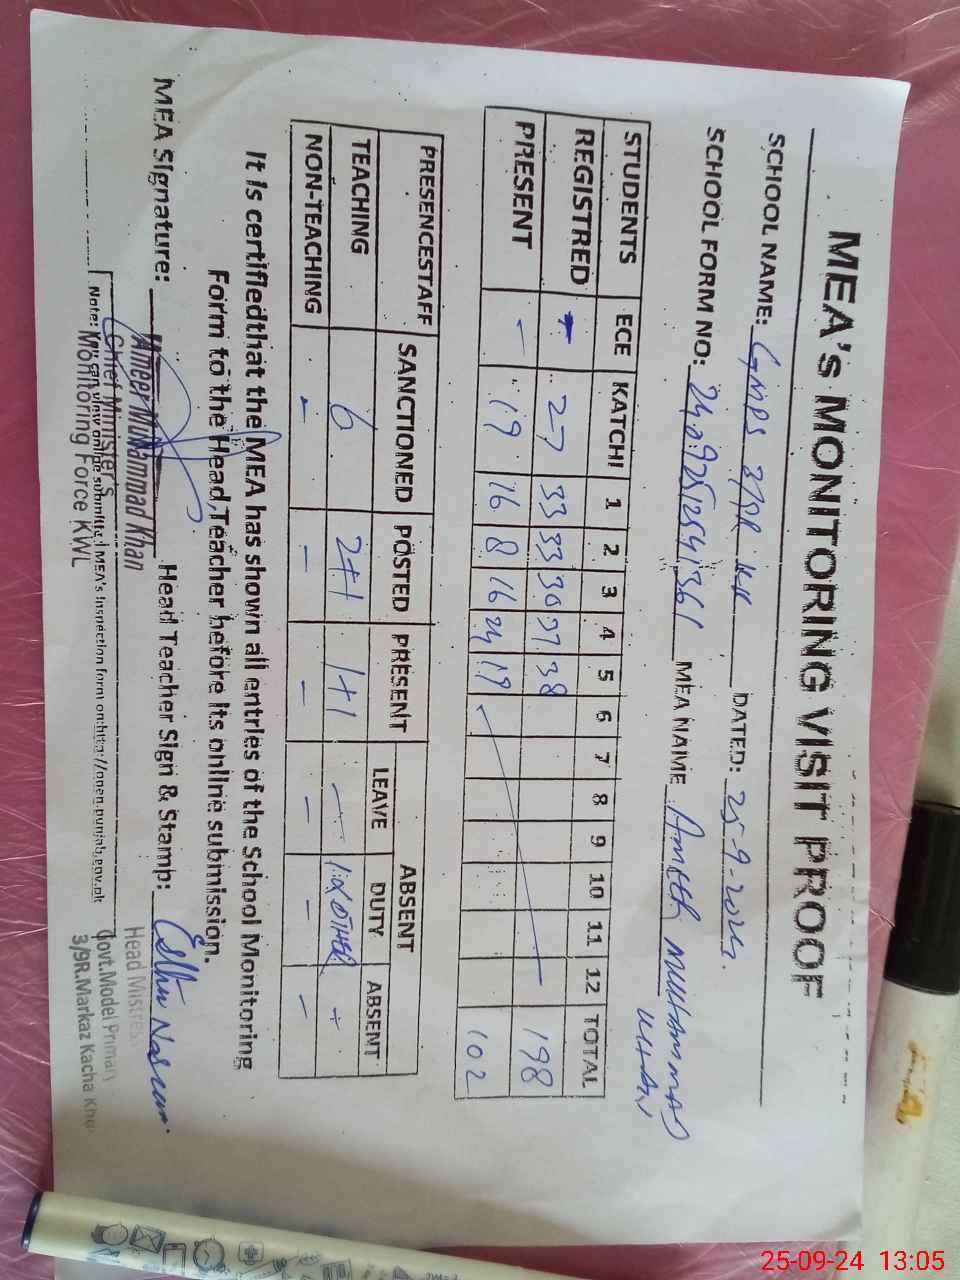 MEA's MONITORING VISIT PROOF
SCHOOL NAME: GMPS 3/9R KH DATED: 25-9-2024.
SCHOOL FORM NO: MEA NAME AMEER MUHAMMAD KHAN
STUDENTS ECE KATCHI 1 2 3 4 5 6 7 8 9 10 11 12 TOTAL
REGISTRED - 27 33 33 30 37 38 198
PRESENT - 19 16 8 16 24 19 102
PRESENCESTAFF SANCTIONED POSTED PRESENT ABSENT
LEAVE DUTY ABSENT
TEACHING 6 2+1 1+1 - 1 OTHER +
NON-TEACHING - - - - - -
It is certifiedthat the MEA has shown all entries of the School Monitoring
Form to the Head,Teacher before its online submission.
MEA Signature: Head Teacher Sign & Stamp:
Ameer Muhammad Khan
Chief Minister's
Monitoring Force KWL
Note: You can view online submitted MEA's Inspection form on:http://open.punjab.gov.pk
Head Mistress
Govt.Model Primary
3/9R.Markaz Kacha Khu
25-09-24 13:05